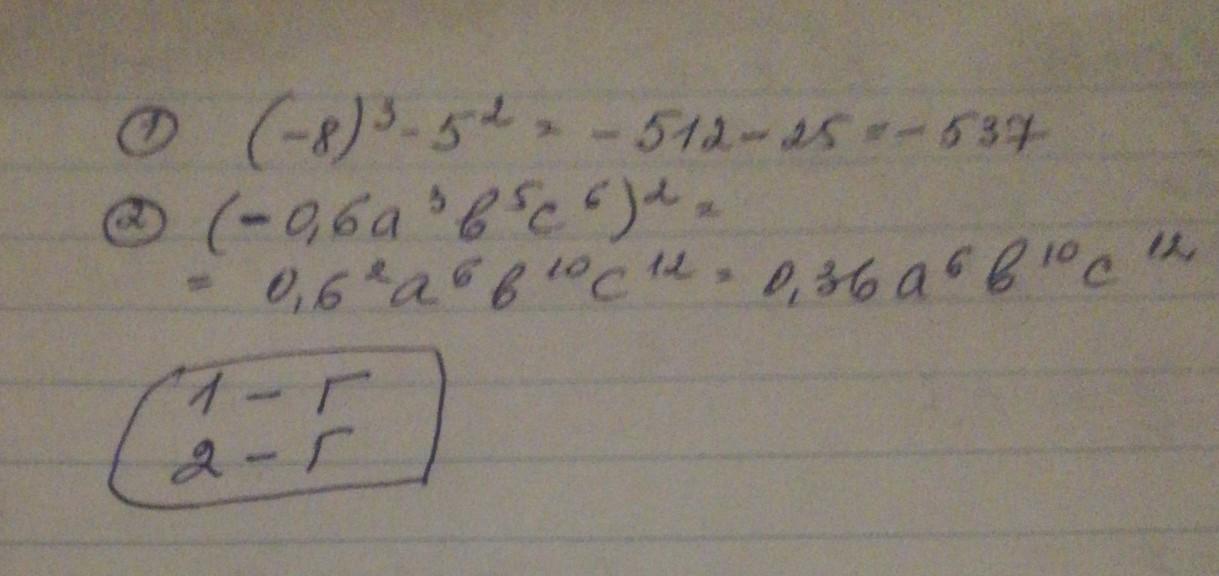 ① (-8)³ - 5² = -512 - 25 = -537
② (-0,6a³b⁵c⁶)² =
= 0,6²a⁶b¹⁰c¹² = 0,36a⁶b¹⁰c¹²
1 - Г
2 - Г